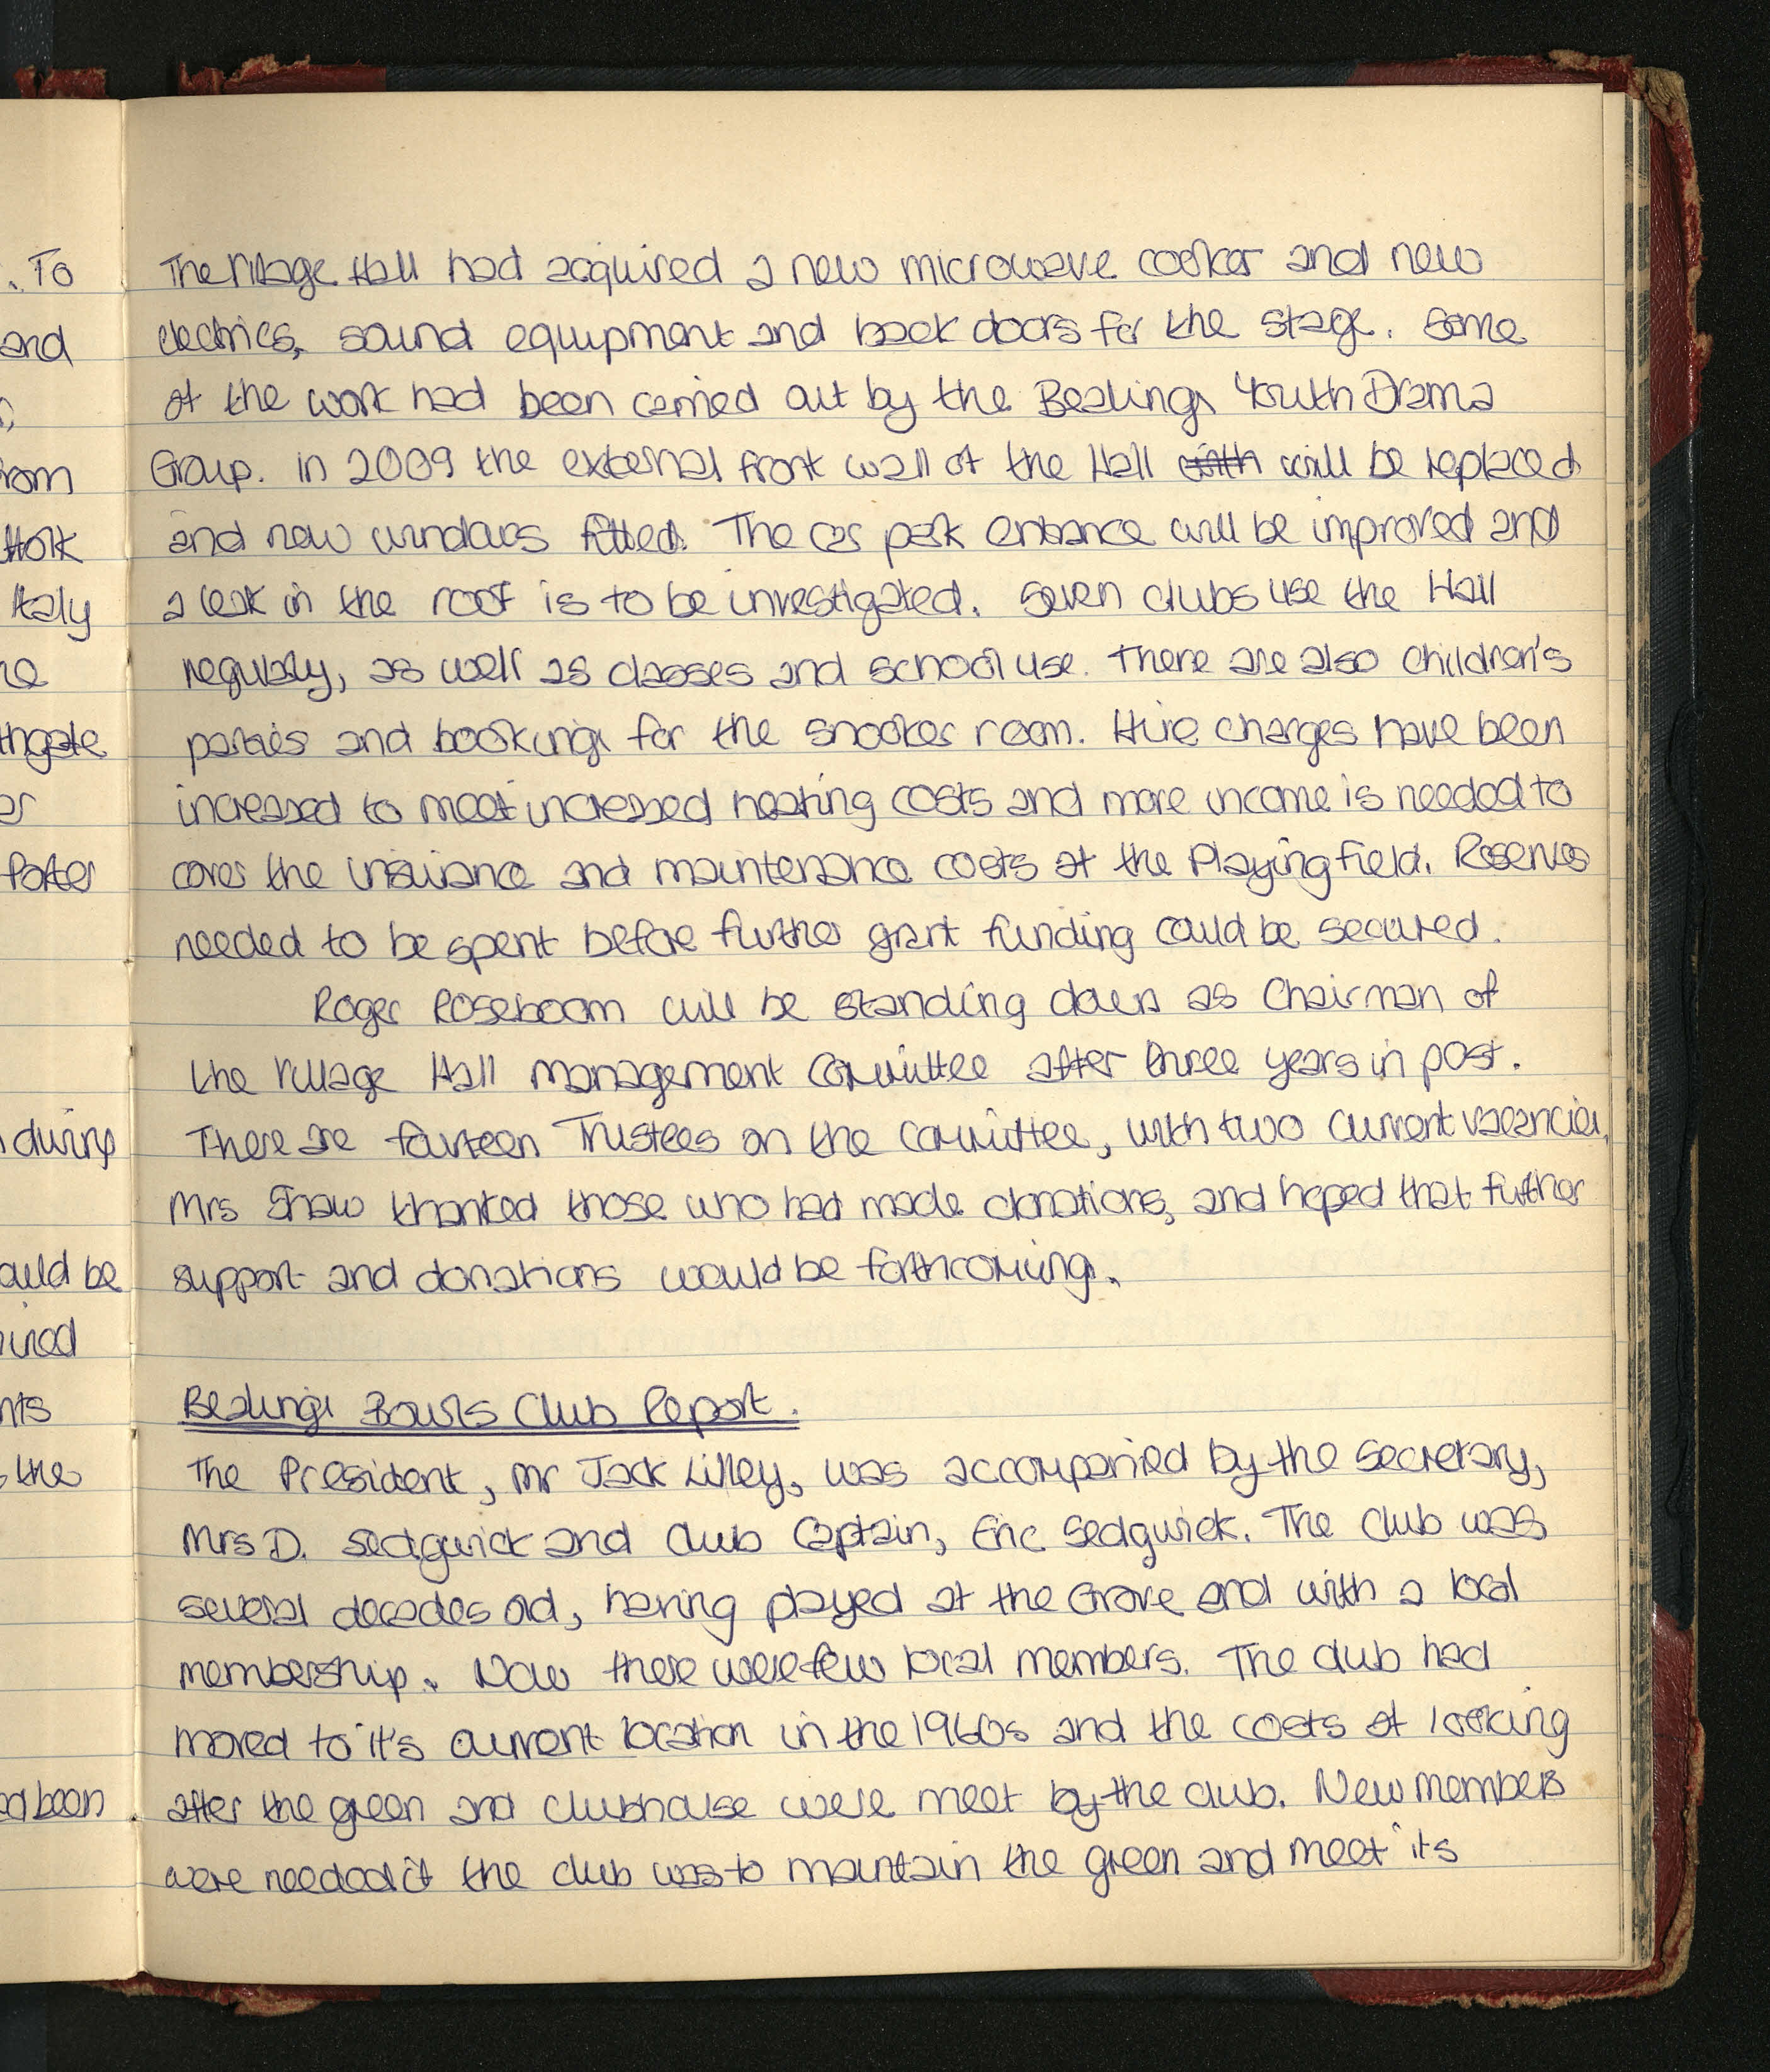 The Village Hall had acquired a new microwave cooker and new
electrics, sound equipment and back doors for the stage. Some
of the work had been carried out by the Bealings Youth Drama
Group. In 2009 the external front wall of the Hall with will be replaced
and new windows fitted. The car park entrance will be improved and
a leak in the roof is to be investigated. Seven clubs use the Hall
regularly, as well as classes and school use. There are also children's
parties and bookings for the snooker room. Hire charges have been
increased to meet increased heating costs and more income is needed to
cover the insurance and maintenance costs of the Playing field. Reserves
needed to be spent before further grant funding could be secured.
Roger Roseboom will be standing down as Chairman of
the Village Hall Management Committee after three years in post.
There are fourteen Trustees on the Committee, with two current vacancies.
Mrs Shaw thanked those who had made donations, and hoped that further
support and donations would be forthcoming.
Bealings Bowls Club Report.
The President, Mr Jack Lilley, was accompanied by the Secretary,
Mrs D. Sedgwick and Club Captain, Eric Sedgwick. The Club was
several decades old, having played at the Grove and with a local
membership. Now there were few local members. The club had
moved to it's current location in the 1960s and the costs of looking
after the green and clubhouse were meet by the club. New members
were needed if the club was to maintain the green and meet its
. To
and
rom
folk
Italy
thgate
er
Porter
during
ould be
nts
the
ed been